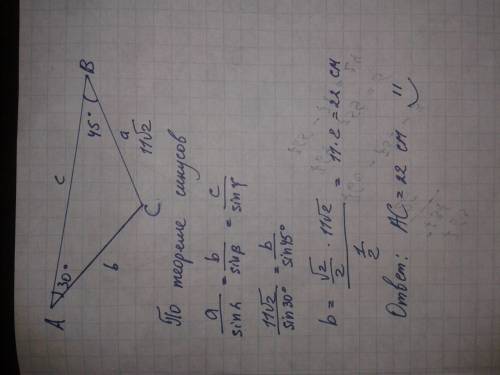 A 30° c 45° B
b C a
11√2
По теореме синусов
a/sin α = b/sin β = c/sin γ
11√2/sin 30° = b/sin 45°
b = (√2/2 · 11√2)/(1/2) = 11 · 2 = 22 см
Ответ: AC = 22 см